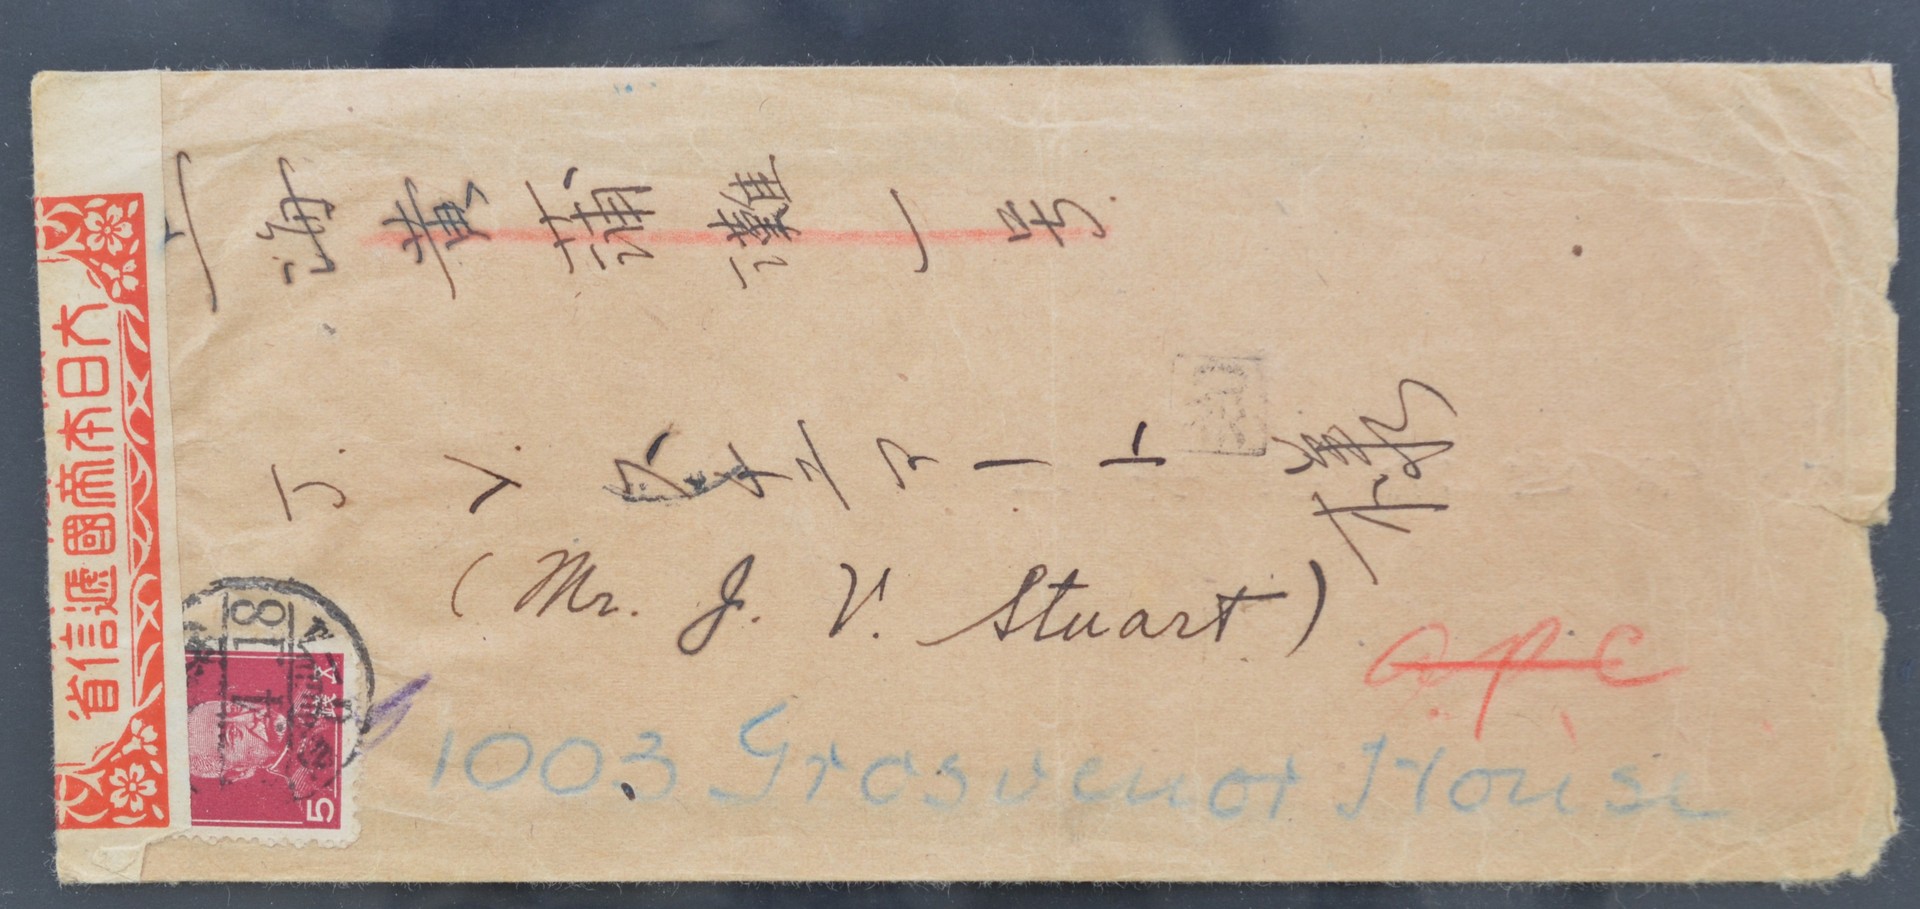 大日本帝國遞信省
上海黄蒲灘一号
J. V. スチュアート様
(Mr. J. V. Stuart)
A.P.C
1003 Grosvenor House
五錢
5